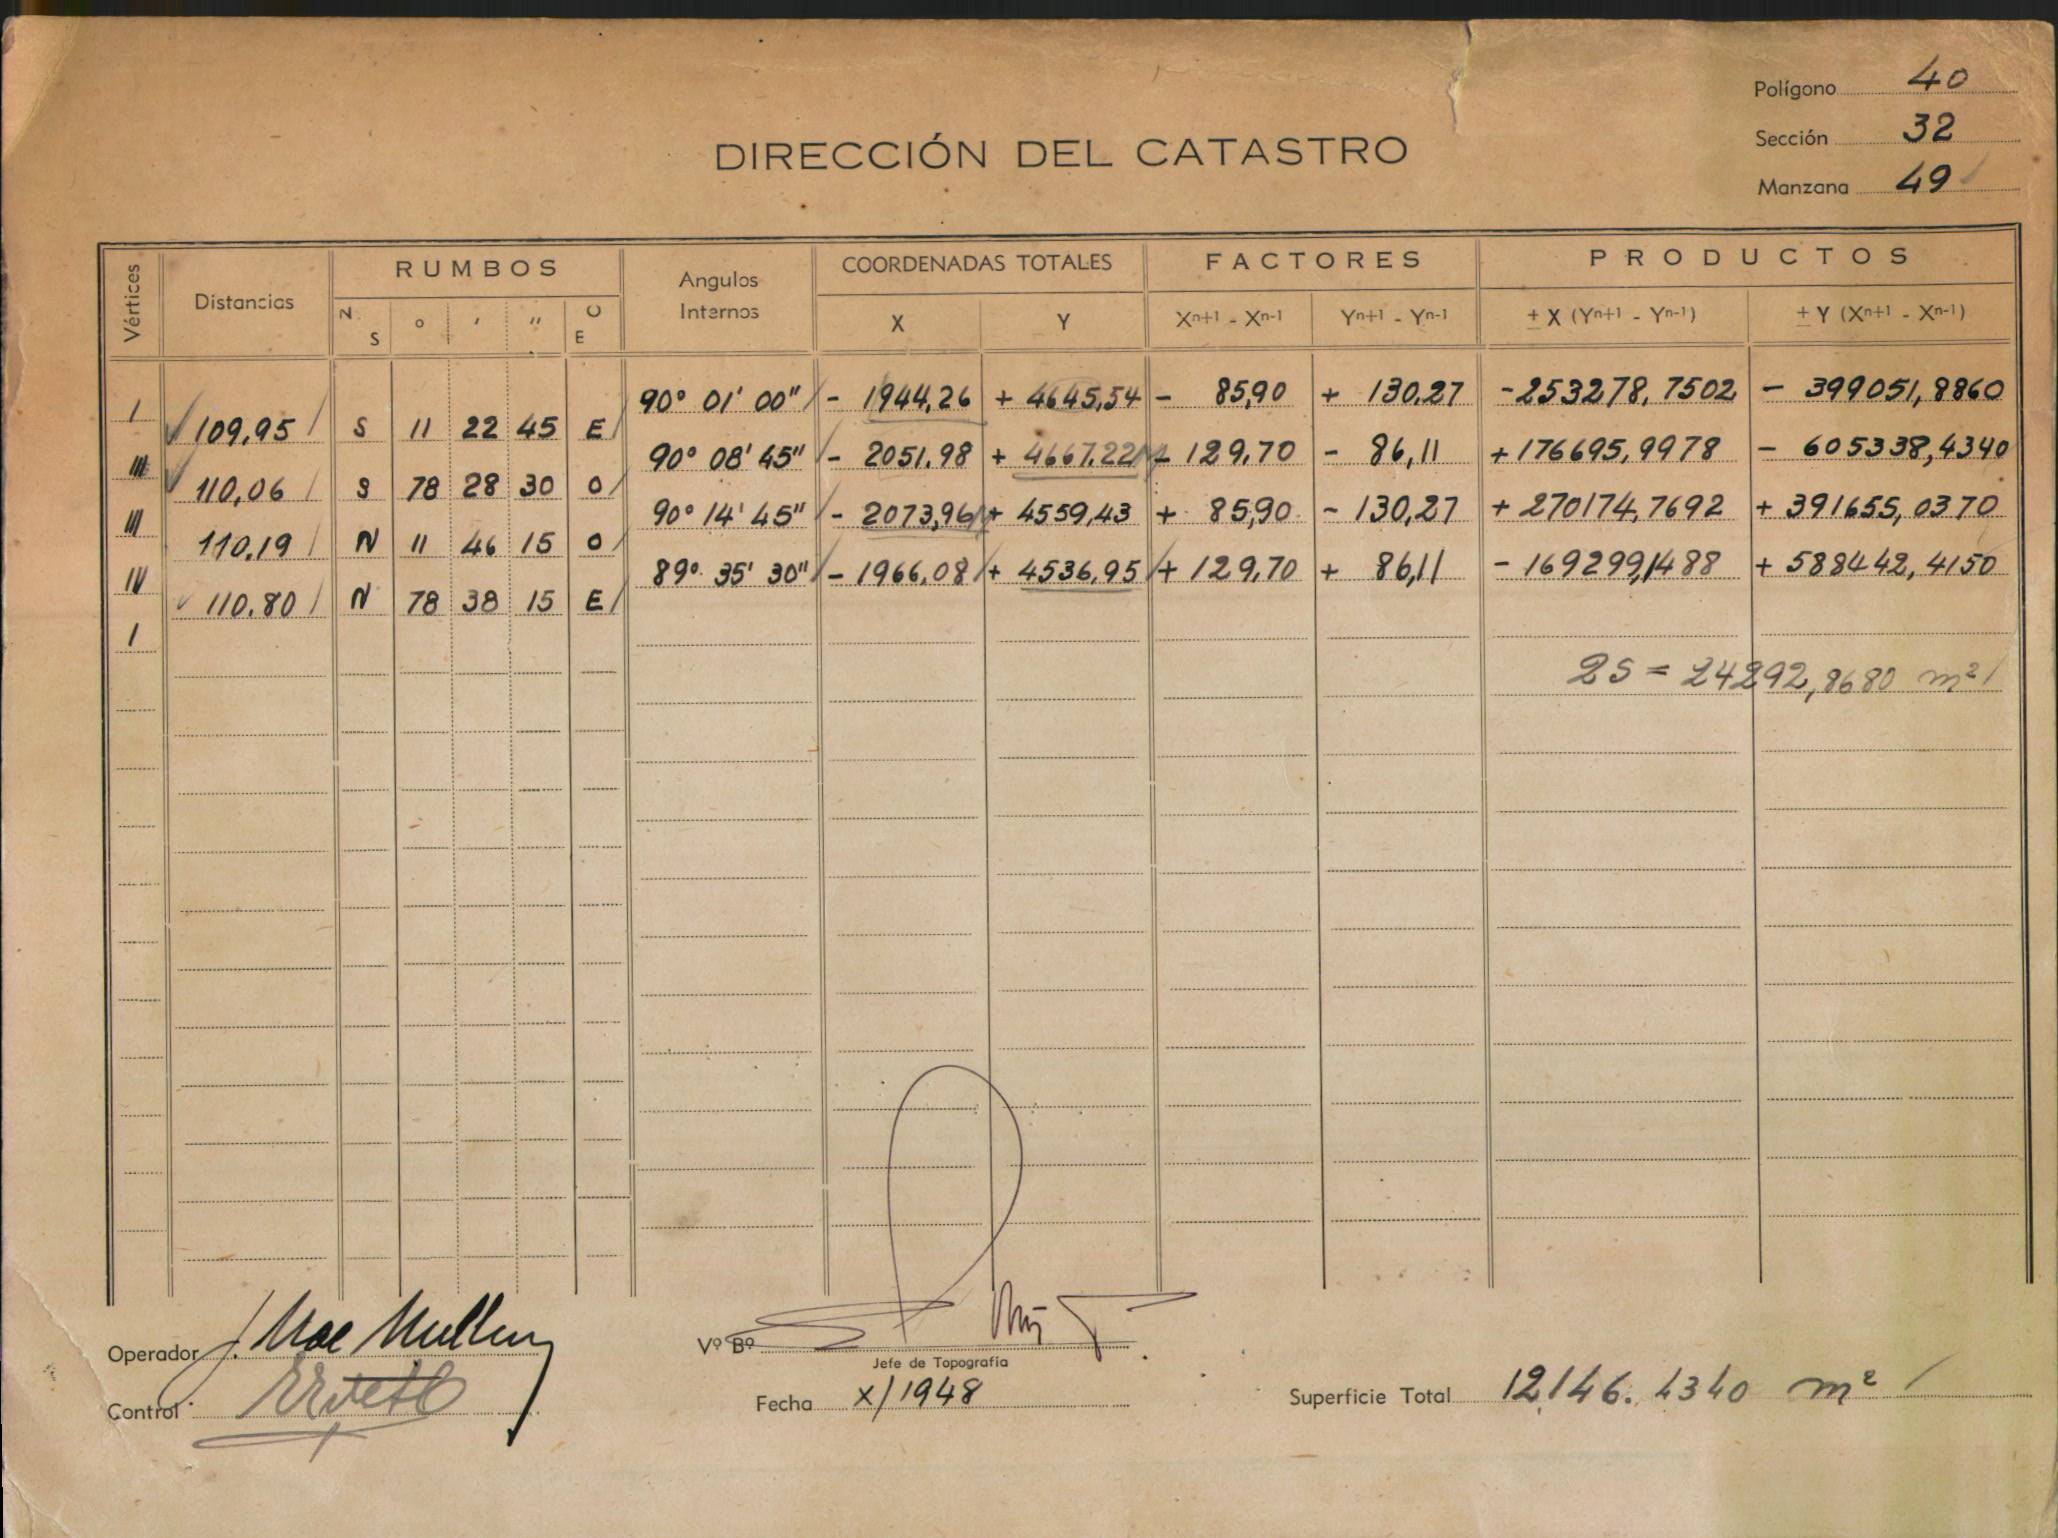 Polígono 40
Sección 32
Manzana 49
DIRECCIÓN DEL CATASTRO
Vértices Distancias RUMBOS Angulos Internos COORDENADAS TOTALES FACTORES PRODUCTOS
N. S ° ′ ″ O E X Y Xn+1 - Xn-1 Yn+1 - Yn-1 ± X (Yn+1 - Yn-1) ± Y (Xn+1 - Xn-1)
I 90° 01' 00" - 1944,26 + 4645,54 - 85,90 + 130,27 -253278,7502 - 399051,8860
109,95 S 11 22 45 E
90° 08' 45" - 2051,98 + 4667,22 - 129,70 - 86,11 +176695,9978 - 605338,4340
110,06 S 78 28 30 O
III 90° 14' 45" - 2073,96 + 4559,43 + 85,90 - 130,27 + 270174,7692 + 391655,0370
110,19 N 11 46 15 O
IV 89° 35' 30" - 1966,08 + 4536,95 + 129,70 + 86,11 - 169299,1488 + 588442,4150
110,80 N 78 38 15 E
I
2S = 24292,8680 m²
Operador J. Mac Mullen
Control
Vº Bº
Jefe de Topografía
Fecha X/1948
Superficie Total 12,146.4340 m²